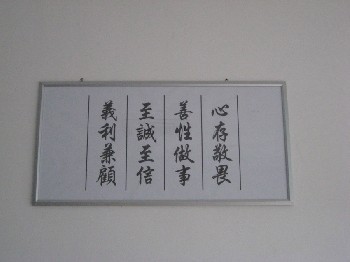 心存敬畏
善性做事
至誠至信
義利兼顧